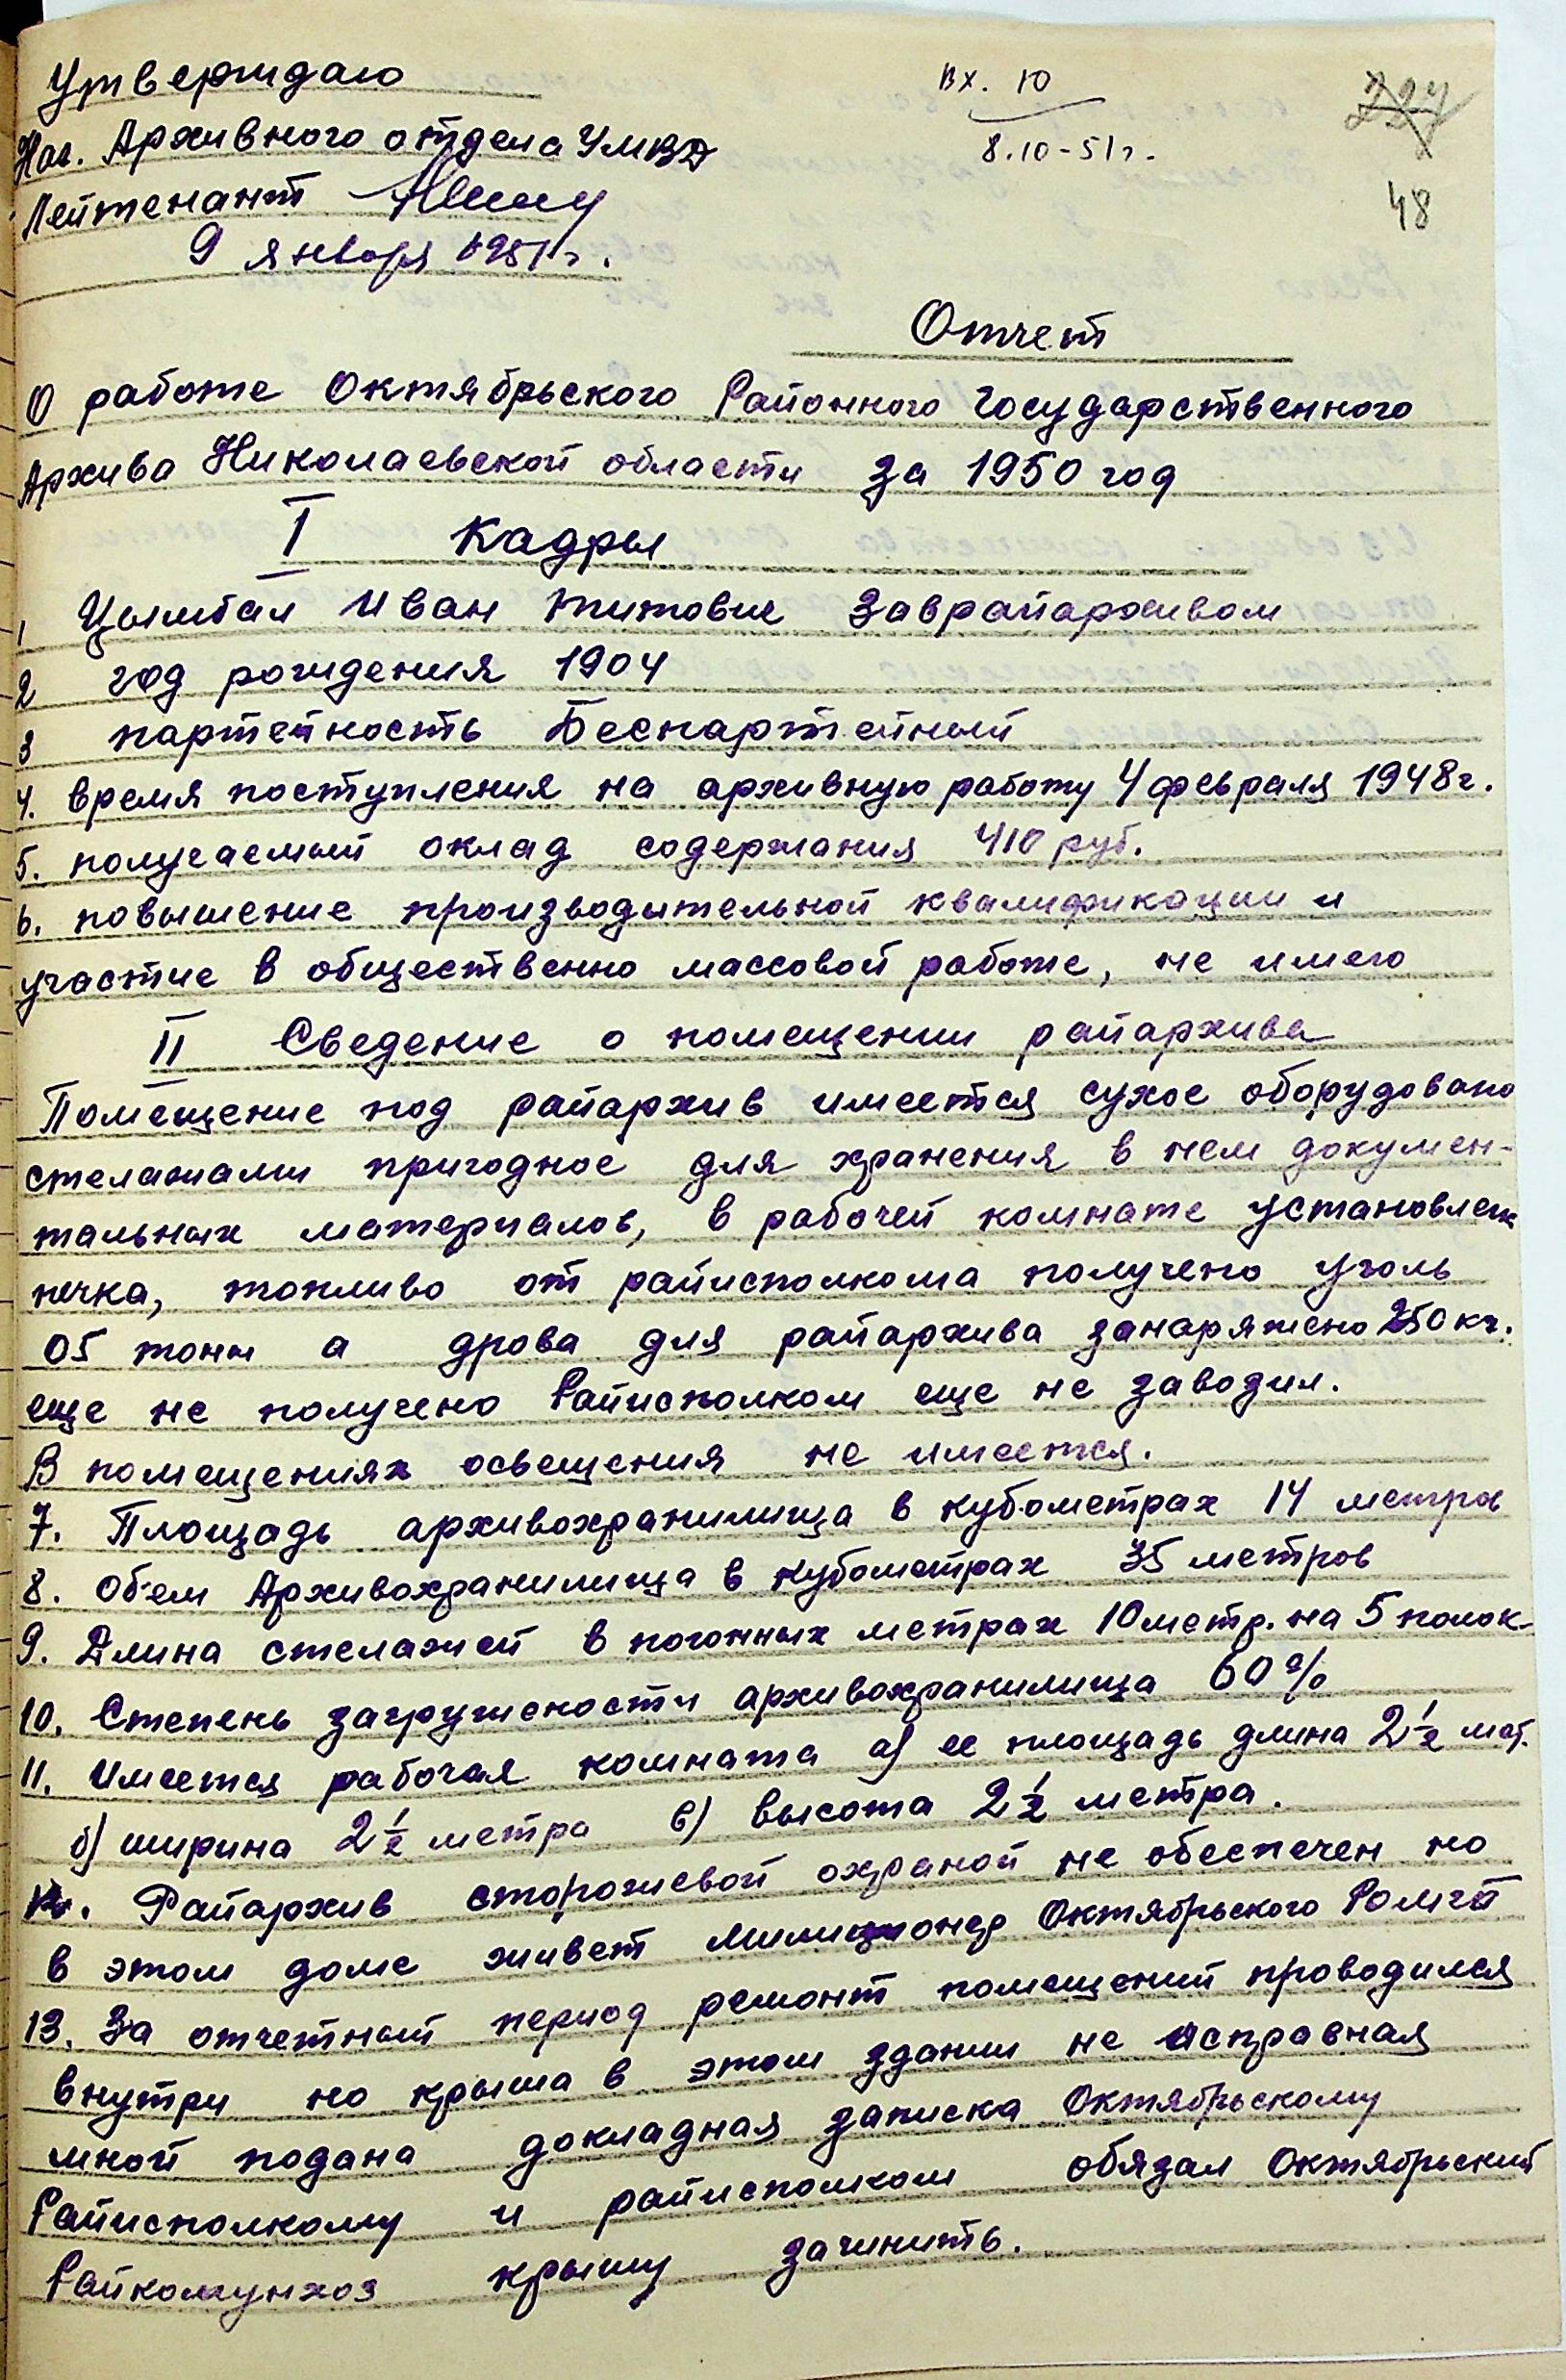 Утверждаю
Нач. Архивного отдела УМВД
Лейтенант
9 января 1951 г.
Вх. 10
8.10-51 г.
48
Отчет
О работе Октябрьского Районного Государственного
Архива Николаевской области за 1950 год
I Кадры
1 Цымбал Иван Титович Заврайархивом
2 год рождения 1904
3 партейность Беспартейный
4. время поступления на архивную работу 4 февраля 1948 г.
5. получаемый оклад содержания 410 руб.
6. повышение производительной квалификации и
участие в общественно массовой работе, не имею
II Сведение о помещении райархива
Помещение под райархив имеется сухое оборудовано
стелажами пригодное для хранения в нем докумен-
тальных материалов, в рабочей комнате установлен
печка, топливо от райисполкома получено уголь
05 тонн а дрова для райархива занаряжено 250 кг.
еще не получено Райисполком еще не заводил.
В помещениях освещения не имеется.
7. Площадь архивохранилища в кубометрах 14 метров
8. Обем Архивохранилища в кубометрах 35 метров
9. Длина стелажей в погонных метрах 10 метр. на 5 полок-
10. Степень загружености архивохранилища 60%
11. Имеется рабочая комната а) ее площадь длина 2 1/2 мет.
б) ширина 2 1/2 метра в) высота 2 1/2 метра.
12. Райархив сторожевой охраной не обеспечен но
в этом доме живет милиционер Октябрьского
13. За отчетный период ремонт помещений проводился
внутри но крыша в этом здании не исправная
мной подана докладная записка Октябрьскому
Райисполкому и райисполком обязал Октябрьский
Райкомунхоз крышу зачинить.